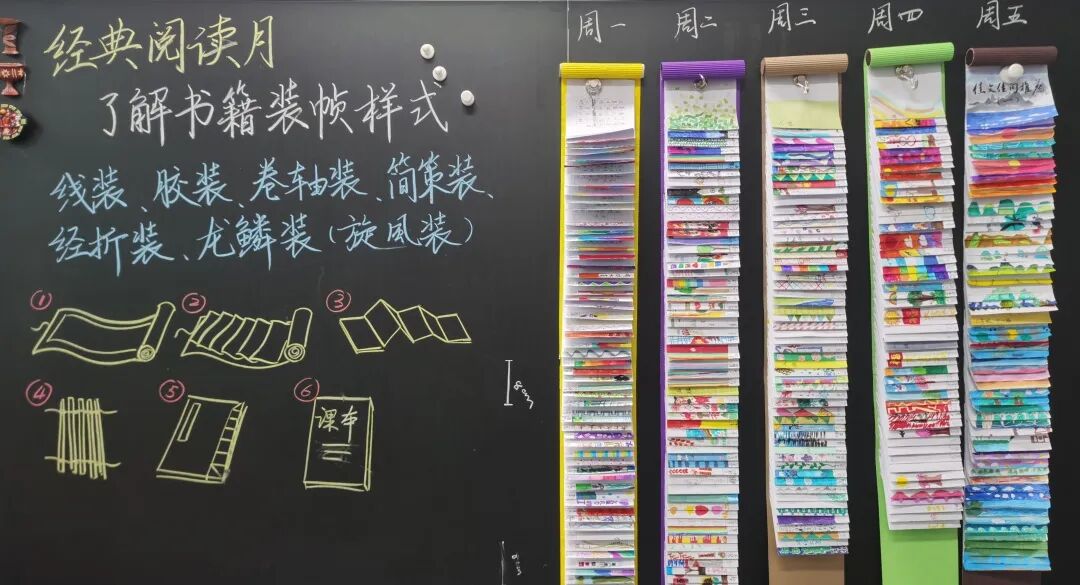 经典阅读月
了解书籍装帧样式
线装、胶装、卷轴装、简策装、
经折装、龙鳞装(旋風装)
① ② ③
④ ⑤ ⑥
课本
周一 周二 周三 周四 周五
佳文佳句推荐